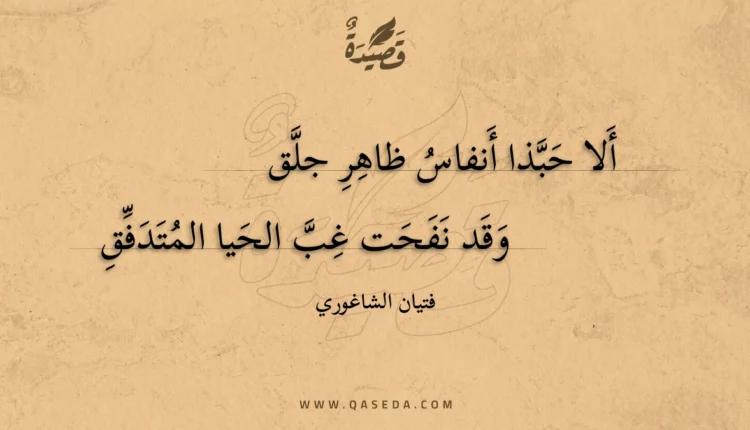 قَصِيْدَةٌ
أَلا حَبَّذا أَنفاسُ ظاهِرِ جلَّق
وَقَد نَفَحَت غِبَّ الحَيا المُتَدَفِّقِ
فتيان الشاغوري
WWW.QASEDA.COM